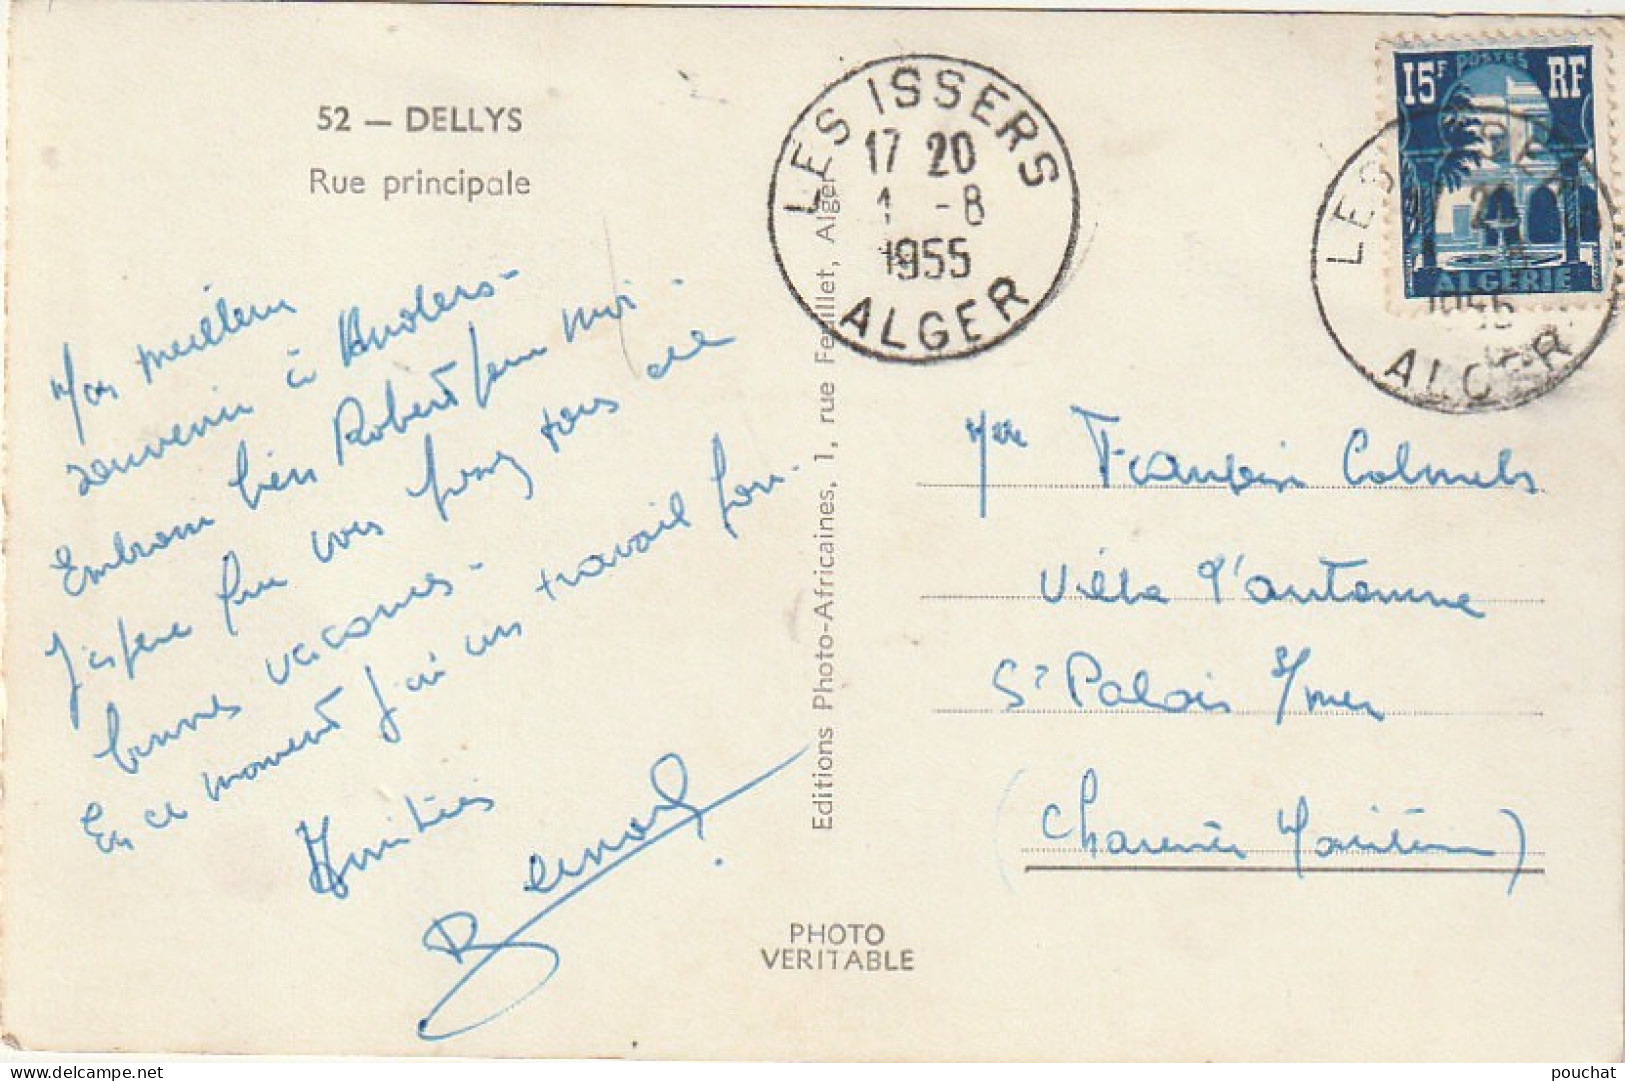 52 — DELLYS
Rue principale
Mon meilleur
souvenir à
Embrasse bien Robert pour moi.
J'espère que vous passez tous de
bonnes vacances.
En ce moment j'ai un travail fou.
Amitiés
Bernard
Editions Photo-Africaines, 1, rue Feuillet, Alger
PHOTO
VERITABLE
LES ISSERS
17 20
1 -8
1955
ALGER
15F POSTES RF
ALGERIE
LES ISSERS
ALGER
Villa l'automne
St Palais s/mer
(Charente Maritime)
delcampe.net
pouchat